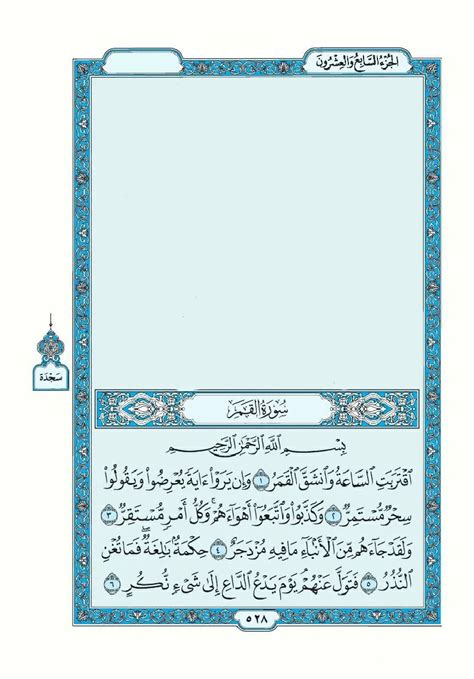 الجُزْءُ السَّابِعُ وَالعِشْرُونَ
سَجْدَة
سُورَةُ القَمَرِ
بِسْمِ ٱللَّهِ ٱلرَّحْمَٰنِ ٱلرَّحِيمِ
ٱقْتَرَبَتِ ٱلسَّاعَةُ وَٱنشَقَّ ٱلْقَمَرُ ١ وَإِن يَرَوْا۟ ءَايَةً يُعْرِضُوا۟ وَيَقُولُوا۟
سِحْرٌ مُّسْتَمِرٌّ ٢ وَكَذَّبُوا۟ وَٱتَّبَعُوٓا۟ أَهْوَآءَهُمْ ۚ وَكُلُّ أَمْرٍ مُّسْتَقِرٌّ ٣
وَلَقَدْ جَآءَهُم مِّنَ ٱلْأَنۢبَآءِ مَا فِيهِ مُزْدَجَرٌ ٤ حِكْمَةٌۢ بَٰلِغَةٌ ۖ فَمَا تُغْنِ
ٱلنُّذُرُ ٥ فَتَوَلَّ عَنْهُمْ ۘ يَوْمَ يَدْعُ ٱلدَّاعِ إِلَىٰ شَىْءٍ نُّكُرٍ ٦
٥٢٨